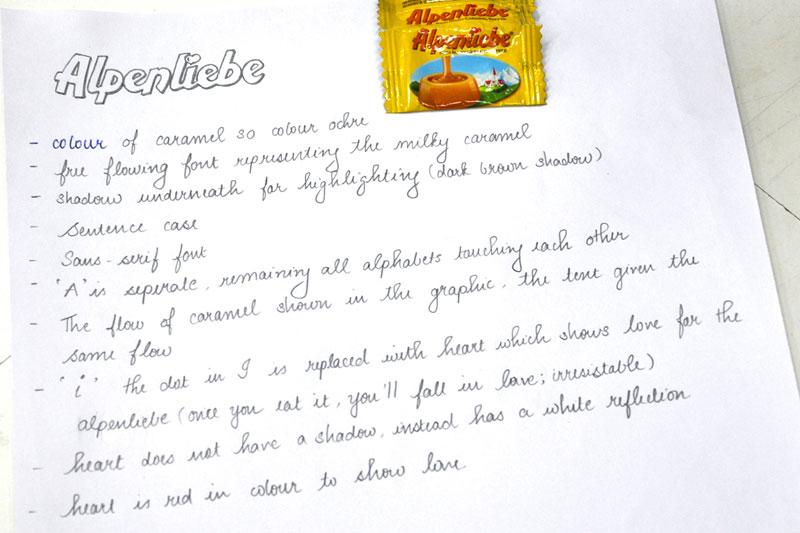 Alpenliebe
Alpenliebe
Alpenliebe
- colour of caramel so colour ochre
- free flowing font representing the milky caramel
- shadow underneath for highlighting (dark brown shadow)
- Sentence case
- Sans-serif font
- 'A' is seperate, remaining all alphabets touching each other
- The flow of caramel shown in the graphic, the text given the
same flow
- 'i' the dot in I is replaced with heart which shows love for the
alpenliebe (once you eat it, you'll fall in love; irresistable)
- heart does not have a shadow, instead has a white reflection
- heart is red in colour to show love.